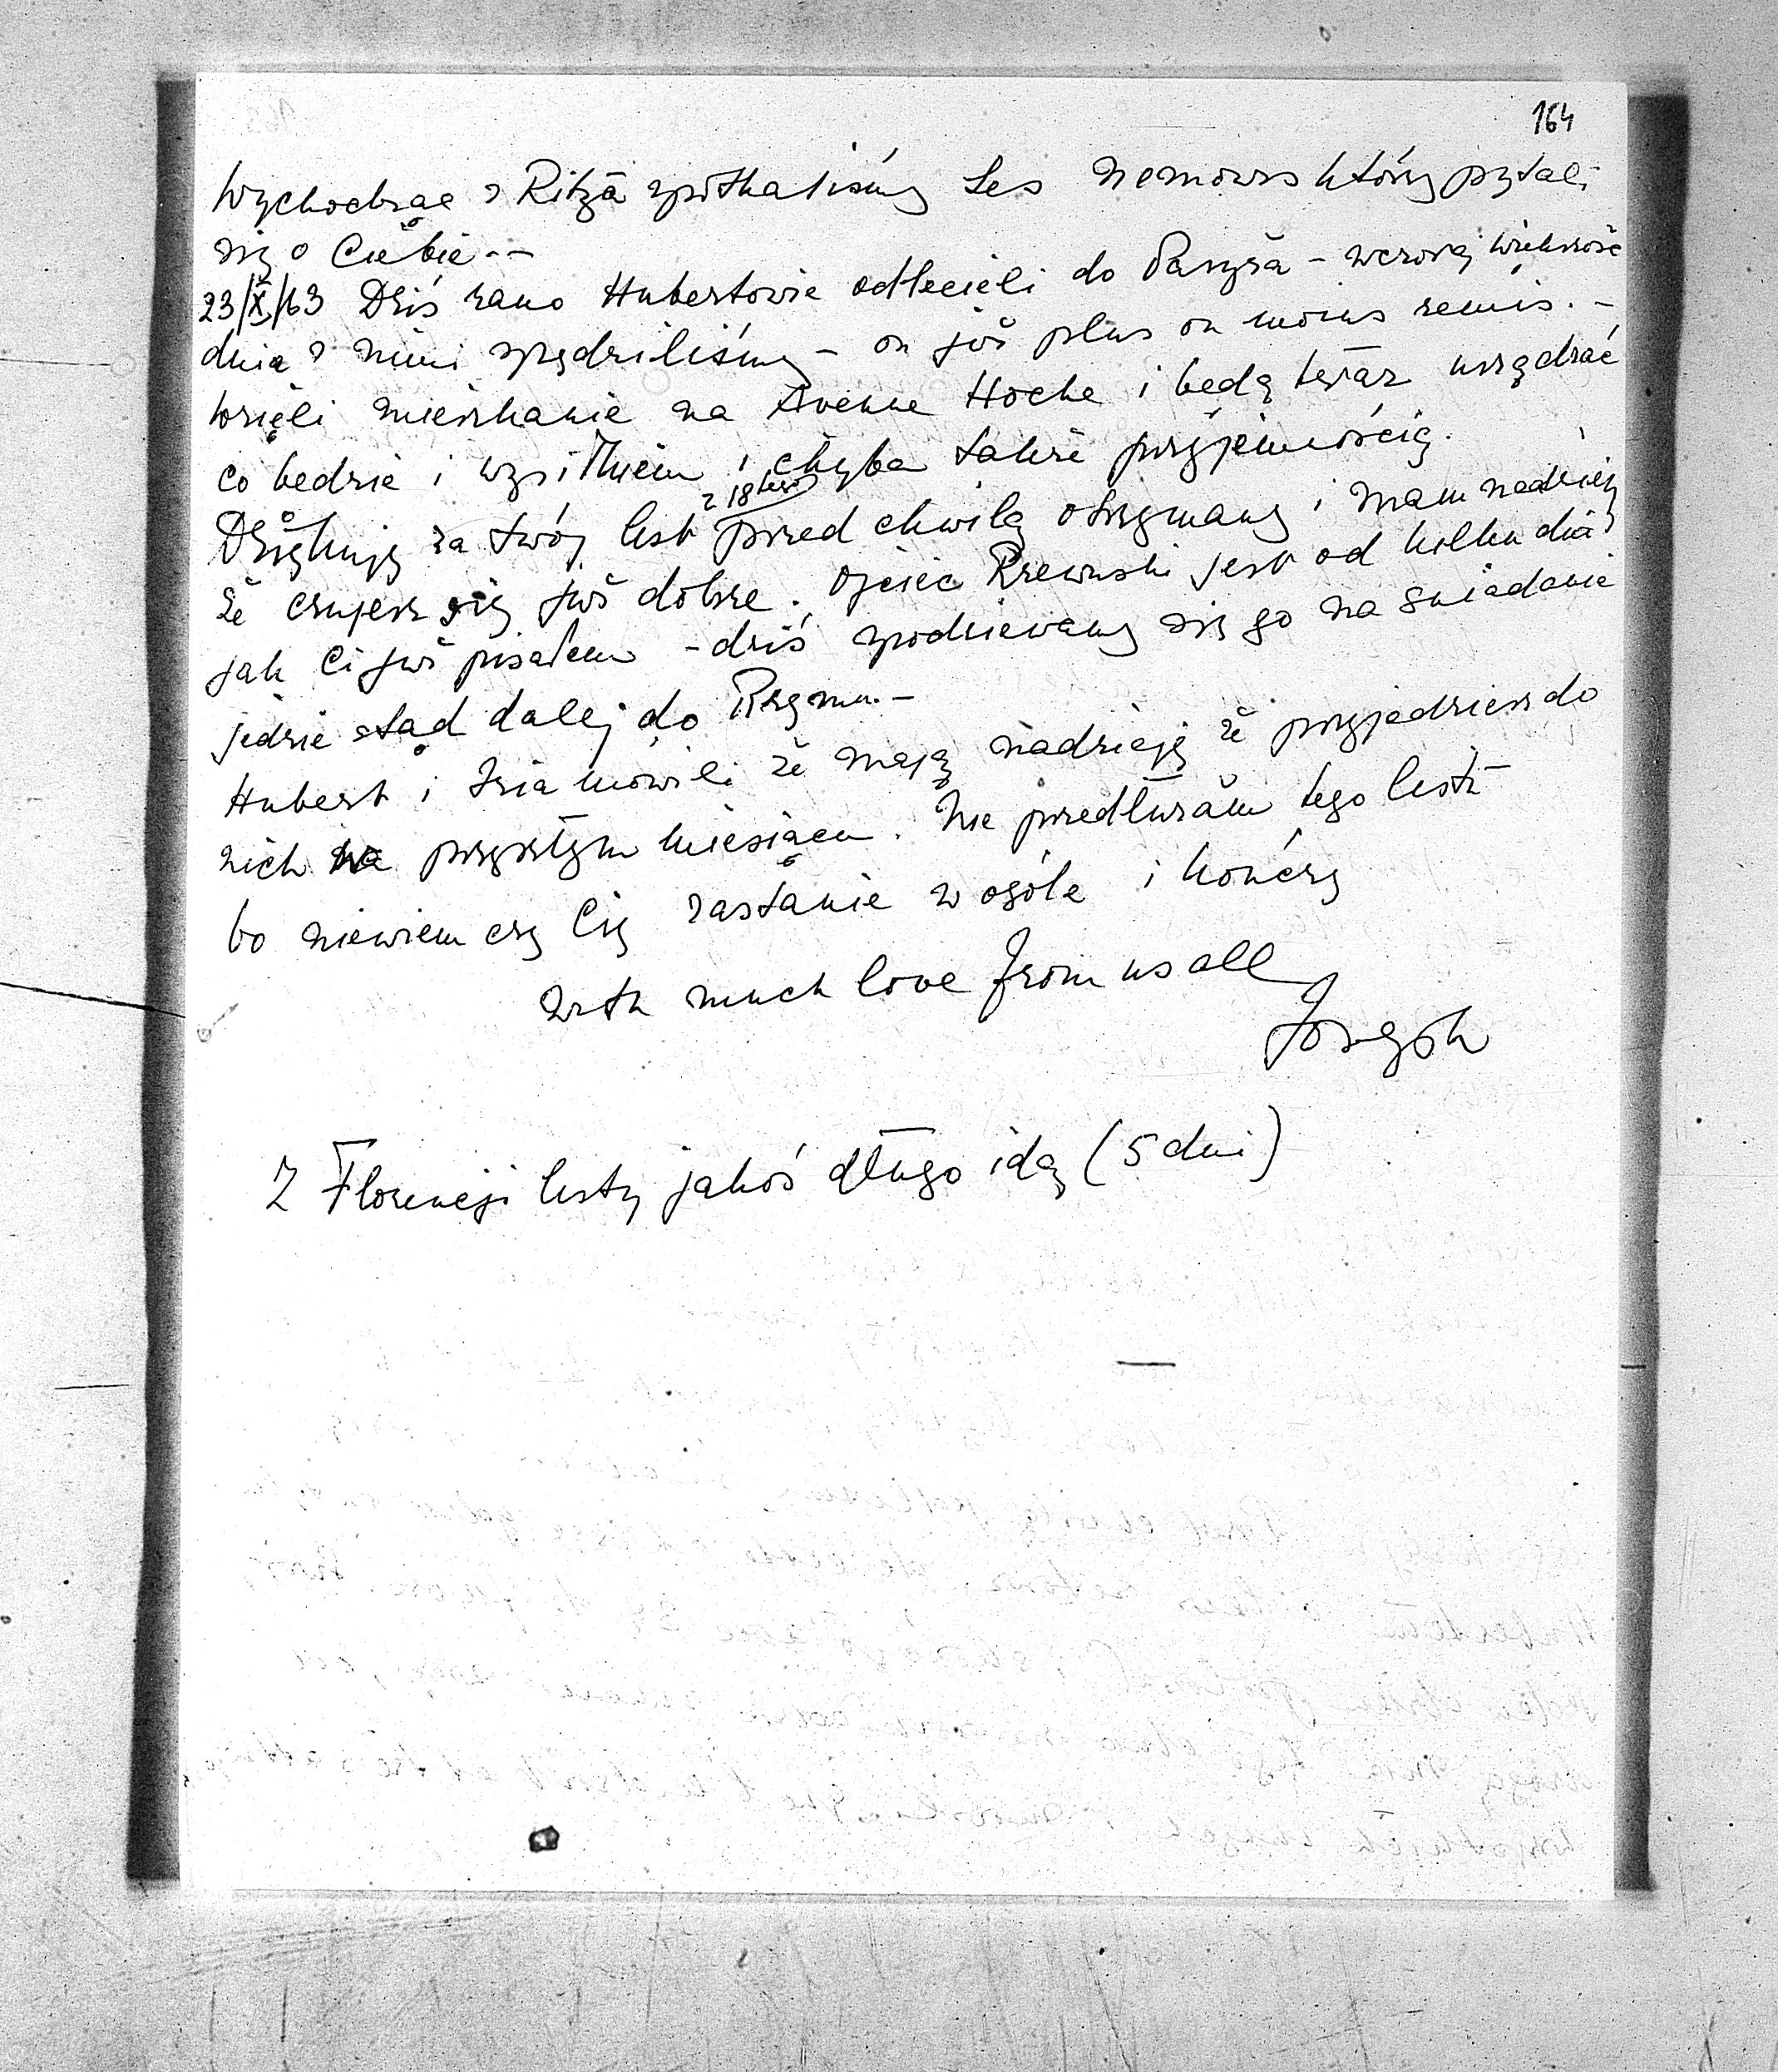 164
Wychodząc z Ritza spotkaliśmy Les Nemours którzy pytali
się o Ciebie --
23/X/63 Dziś rano Hubertowie odlecieli do Paryża - wczoraj większość
dnia z nimi spędziliśmy - on już plus ou moins remis. -
Wzięli mieszkanie na Avenue Hoche i będą teraz urządzać
co będzie i wysiłkiem i chyba także przyjemnością.
z 18tego
Dziękuję za twój list przed chwilą otrzymany i mam nadzieję
że czujesz się już dobrze. Ojciec Rzewuski jest od kilku dni
jak Ci już pisałem - dziś spodziewamy się go na śniadanie
jedzie stąd dalej do Rzymu. -
Hubert i Isia mówili że mają nadzieję że przyjedziesz do
nich w przyszłym miesiącu. Nie przedłużam tego listu
bo niewiem czy Cię zastanie w ogóle i kończę
with much love from us all
Joseph
Z Florencji listy jakoś długo idą (5 dni)